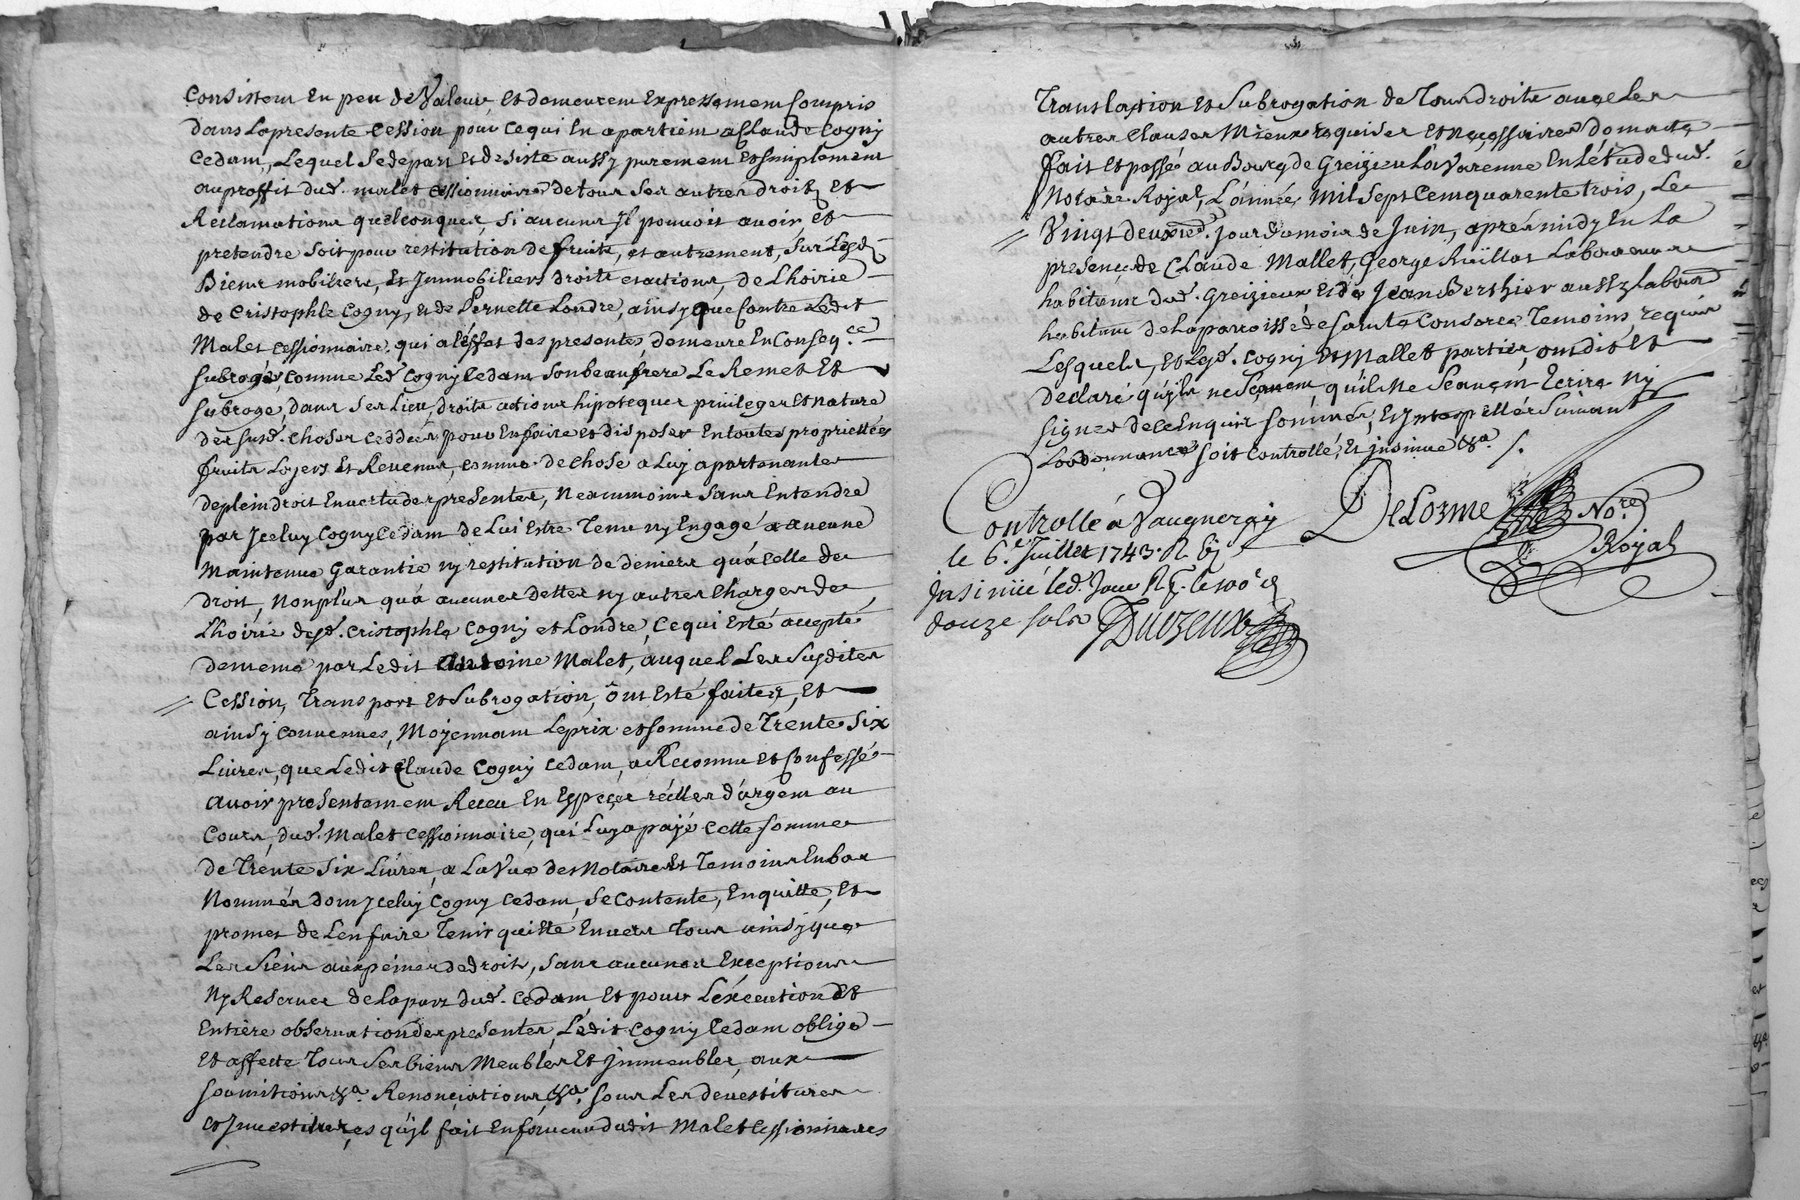 Consistem En peu de Valeur et demeurem Expressemem Compris
dans La presente Cession pour ce qui En apartiem a Claude Cogny
Cedam, Lequel Se depart et desiste aussy purement Et Simplement
au proffit dud. malet cessionnaire de tous Ses autres droits Et
Reclamations quelconques, Si aucuns Jl pouvoit avoir et
pretendre Soit pour restitution de fruits, et autrement, Sur Lesd.
Biens mobiliers, Et Jmmobiliers droits et actions, de L'hoirie
de Cristophle Cogny, et de Pernette Londre, ainsy que Contre Ledit
Malet cessionnaire, qui a L'effet des presentes, demeure En Conseq.ce
Subrogé, Comme Led. Cogny Cedam Son beau frere Le Remet Et
Subroge, dans Ses Lieu, droits actions hipoteques privileges Et nature
des susd. choses ceddées, pour En faire et disposer En toutes propriettées
fruits Loyers Et Revenus, comme de chose a Luy apartenante
de plein droit En vertu des presentes, Neanmoins Sans Entendre
par Jceluy Cogny Cedam de Lui Estre Tenu ny Engagé a aucune
Maintenue Garantie ny restitution de deniers qu'a celle de
droit, Non plus qu'a aucunes dettes ny autres Charges de
L'hoirie desd. Cristophle Cogny et Londre, Ce qui Esté accepté
de meme par Ledit Antoine Malet, auquel Les Susdites
Cession, Transport et Subrogation, ont Esté faites, Et
ainsy convenues, Moyennam Le prix et somme de Trente Six
Livres, que Ledit Claude Cogny Cedam, a Reconnu et Confessé
avoir presentemem Receu En Espeçes réelles d'argem au
Cours, dud. Malet Cessionnaire, qui Luy a payé Cette Somme
de Trente Six Livres, a La Vue des Notaire Et Temoins En bas
Nommés dom Jceluy Cogny Cedam, Se Contente, En quitte, Et
promet de L'en faire Tenir quitte Envers Tous ainsy que
Les Siens aux peines de droit, Sans aucunes Exceptions
Ny Reserves de La part dud. Cedam Et pour L'éxecution Et
Entière observation des presentes, Ledit Cogny Cedam oblige
Et affecte Tous Ses biens Meubles Et Jmmeubles, aux
Soumitions &a. Renonçiations, &a. Sous Les devestitures
et Jnvestitures qu'jl fait En faveur dudit Malet Cessionnaire
Translaxion Et Subrogation de Tous droits avec Les
autres Clauses Mieux requises Et Neçessaires dom acte
fait Et passé au Bourg de Greizieu La Varenne En L'étude dud.
Notaire Royal, L'année, Mil Sept Cem quarente trois, Le
Vingt deuxie. jour du mois de Juin, aprés midy En La
presençe de Claude Mallet, George Ruillat Laboureurs
habitans dud. Greizieux Et de Jean Berthier aussy labour.
habitant de La parroisse de Sainte Consorce Temoins requis
Lesquels, Et Lesd. Cogny Et Mallet parties om dit Et
Declaré qu'jls ne Scavem qu'il Ne Scavem Ecrire Ny
Signer de Ce Enquis Sommés, Et Jnterpellés Suivant
L'ordonnance Soit Controllé, Et jnsinué &a.
DeLorme No.re
Royal
Controllé á Vaugneray
le 6.e Juillet 1743. R.
Jnsinué led. Jour R
douze sols